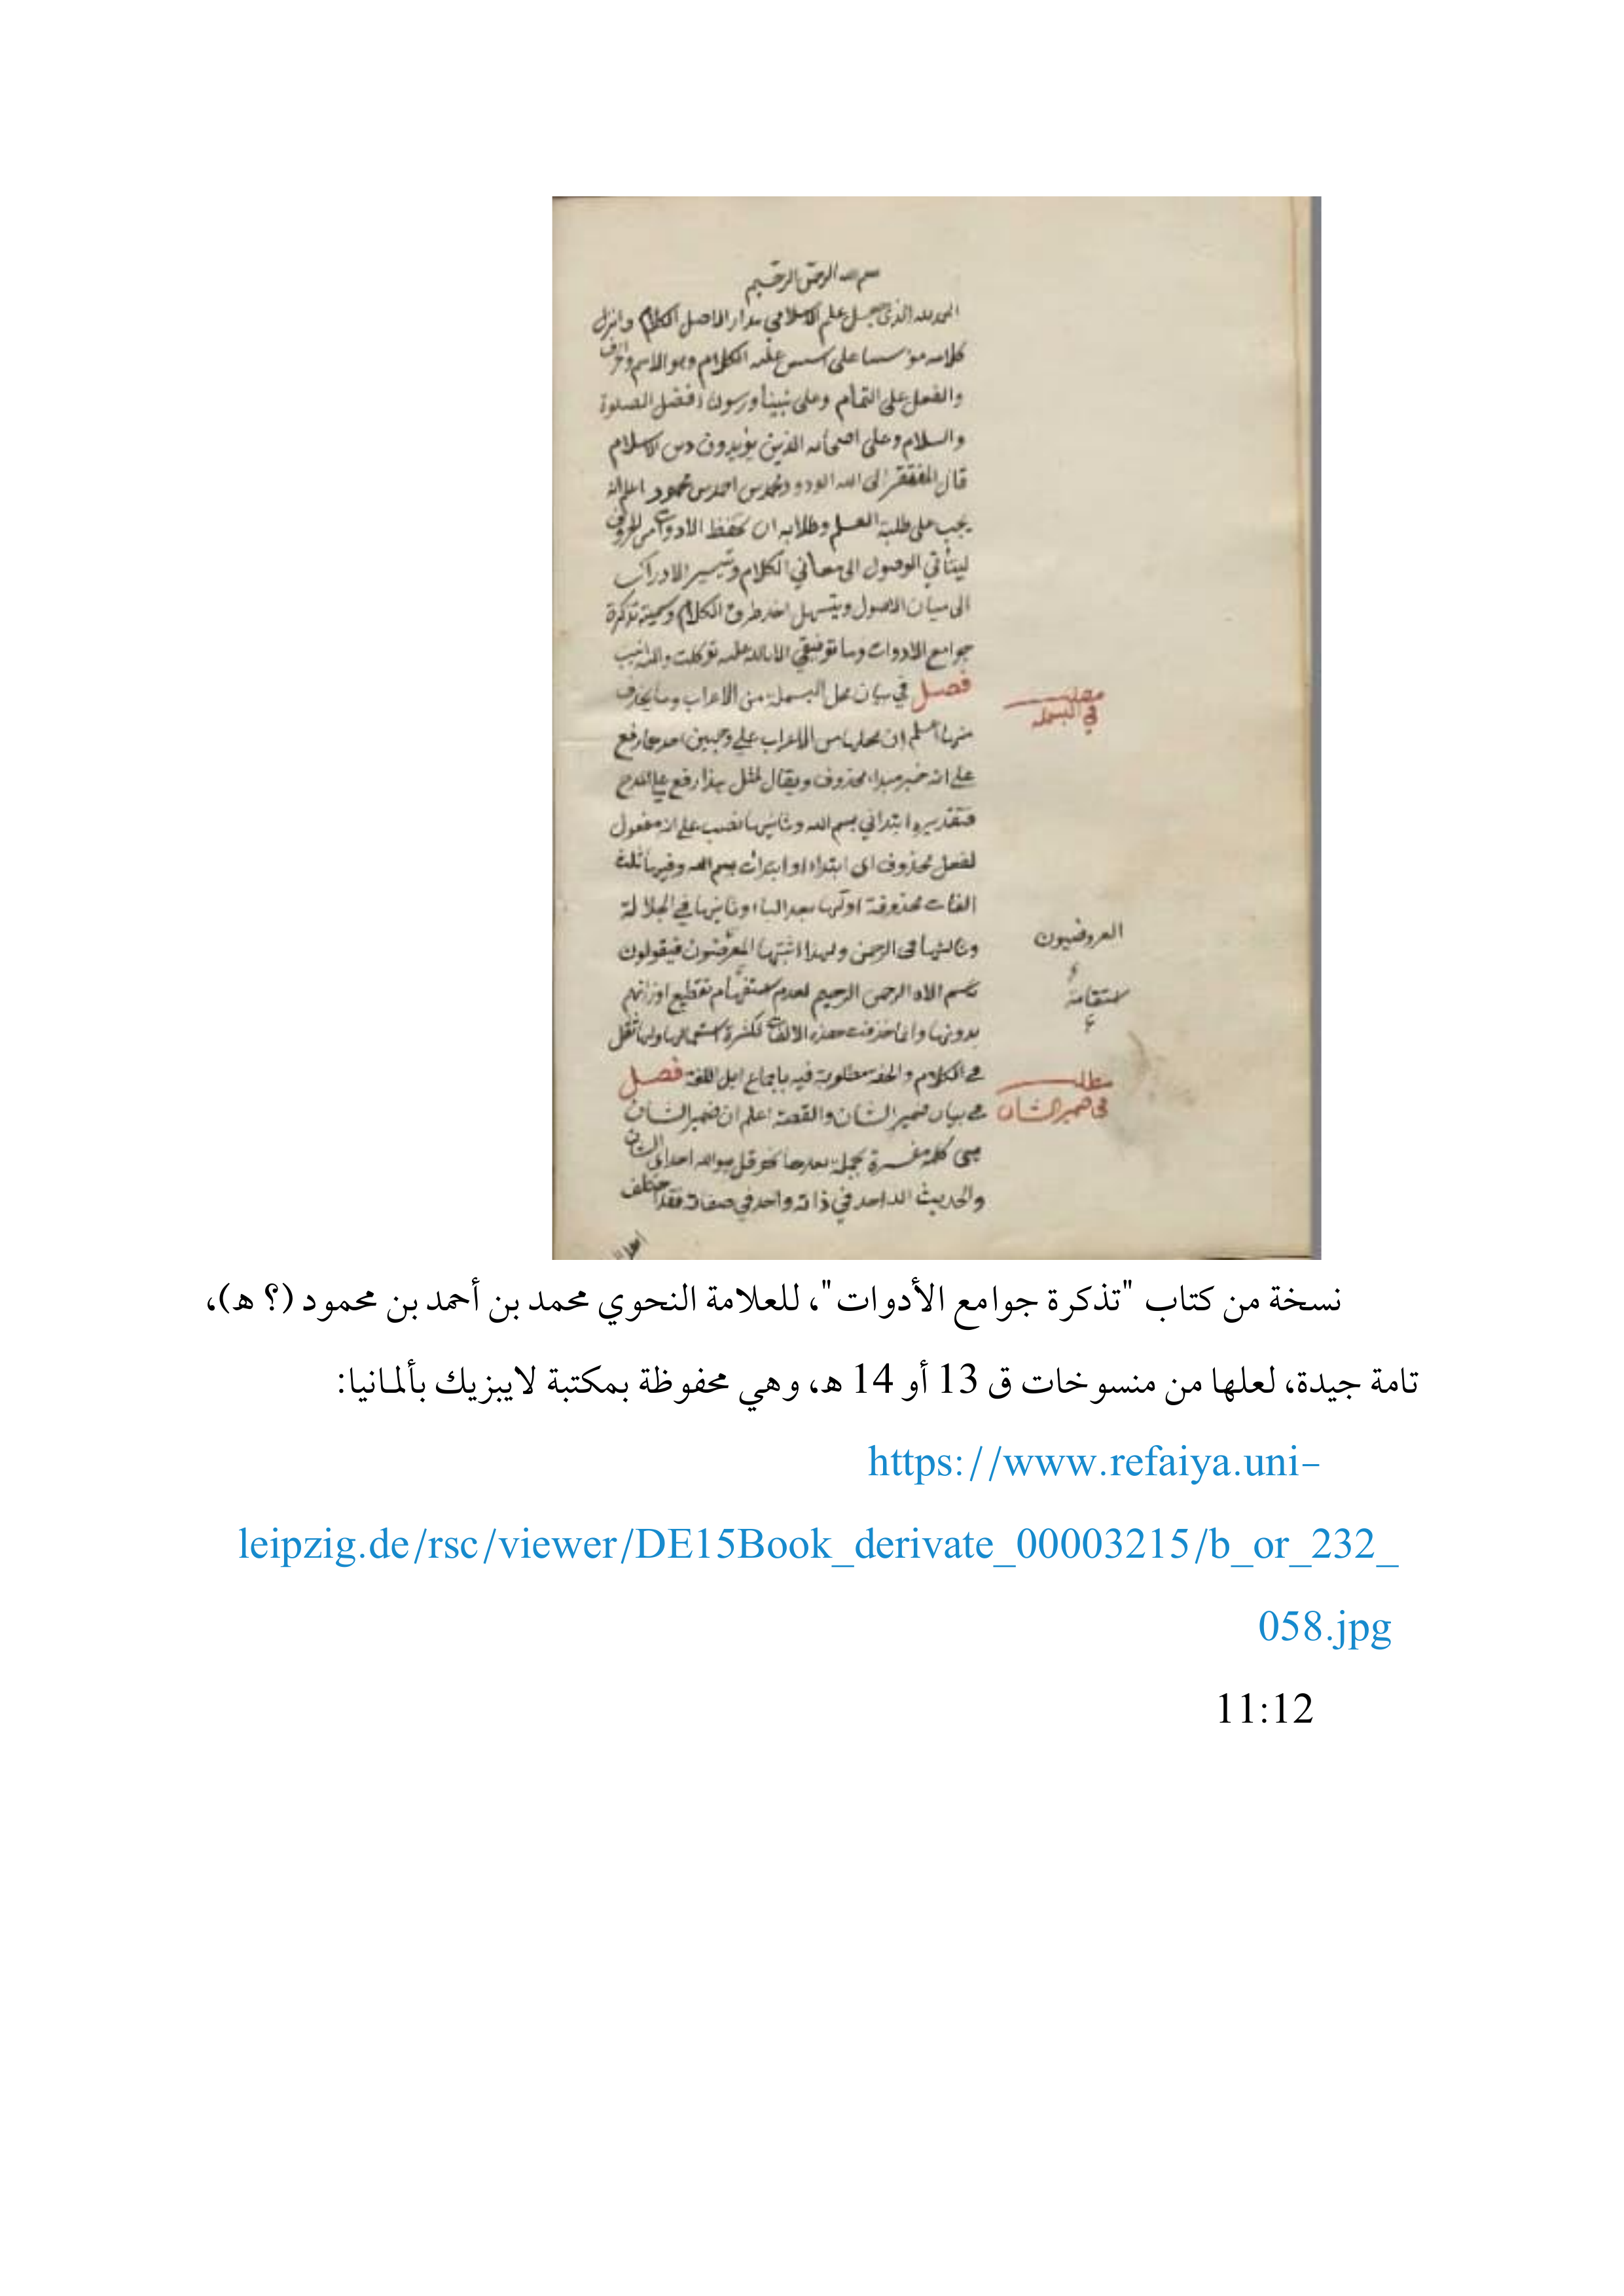 بسم الله الرحمن الرحيم
الحمد لله الذى جعل علم الاسلامي مدار الاصل الكلام وانزل
كلامه مؤسسا على اسس علم الكلام وهو الاسم والحرف
والفعل على التمام وعلى نبينا ورسوله افضل الصلوة
والسلام وعلى اصحابه الذين يؤيدون دين الاسلام
قال المفتقر الى الله الودود محمد بن احمد بن محمود اعلم انه
يجب على طلبة العلم وطلابه ان تحفظ الادوات من الحروف
ليتأتي الوصول الى معاني الكلام وتيسير الادراك
الى بيان الاصول ويتسهل اخذ طرق الكلام وسميته تذكرة
جوامع الادوات وما توفيقي الا بالله عليه توكلت واليه انيب
فصل في بيان محل البسملة من الاعراب وما يحذف
منها اعلم ان محلها من الاعراب علي وجهين احدها رفع
علي انه خبر مبتداء محذوف ويقال لمثل هذا رفع علي المدح
فتقديره ابتدائي بسم الله وثانيها نصب على انه مفعول
لفعل محذوف اى ابتداء او ابتدأت بسم الله وفيها ثلث
الفات محذوفة اولها بعد الباء وثانيها في الجلالة
وثالثها فى الرحمن ولهذا اثبتها المعرضون فيقولون
باسم الاه الرحمن الرحيم لعدم استفهام تقطيع اوزانهم
بدونها وانما حذفت هذه الالفات لكثرة استعمالها ولها ثقل
في الكلام والخفة مطلوبة فيه باجماع اهل اللغة فصل
في بيان ضمير الشان والقصة اعلم ان ضمير الشان
هى كلمة مفسرة بجملة بعدها نحو قل هو الله احد اى الشان
والحديث الله احد في ذاته واحد في صفاته فقد اختلف
مطلب
في البسملة
العروضيون
استقامة
مطلب
فى ضمير الشان
نسخة من كتاب "تذكرة جوامع الأدوات"، للعلامة النحوي محمد بن أحمد بن محمود (؟ ه)،
تامة جيدة، لعلها من منسوخات ق 13 أو 14 ه، وهي محفوظة بمكتبة لايبزيك بألمانيا:
https://www.refaiya.uni-
leipzig.de/rsc/viewer/DE15Book_derivate_00003215/b_or_232_
058.jpg
11:12